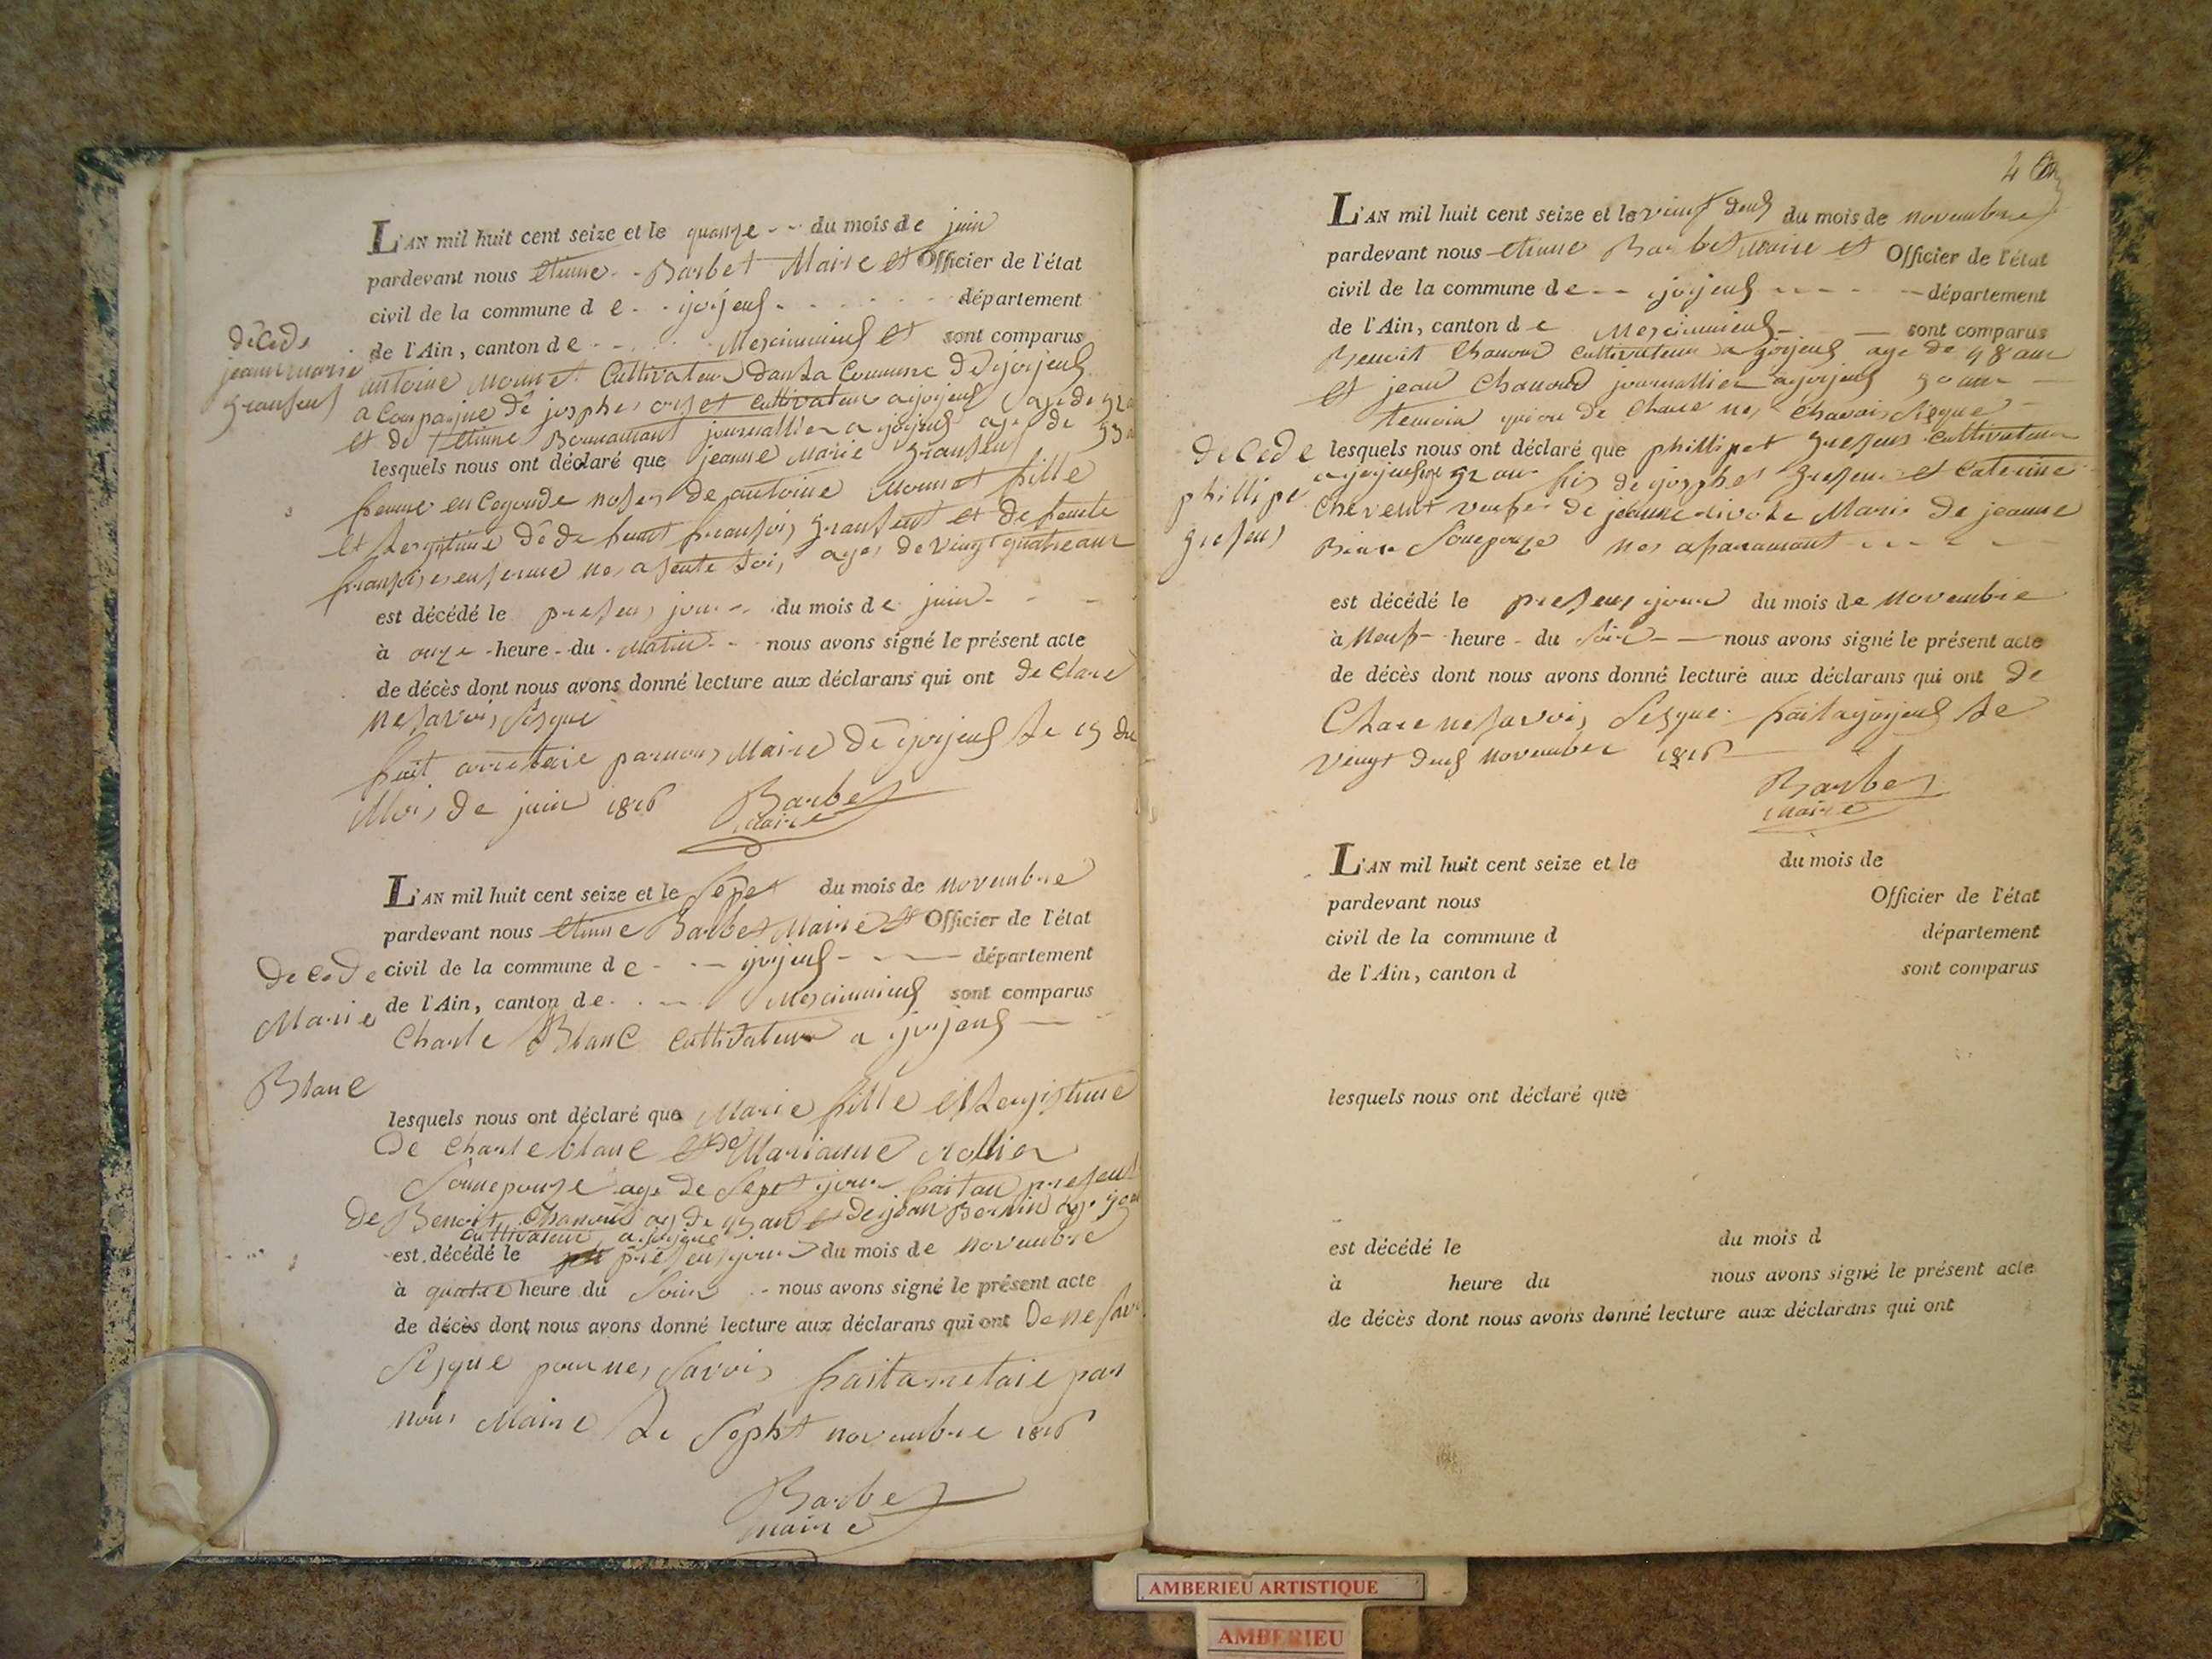 décede
jeanne marie
gransens
L'AN mil huit cent seize et le quanze du mois de juin
pardevant nous etienne Barbet Maire et Officier de l'état
civil de la commune de joyeus département
de l'Ain, canton de Meximieus et sont comparus
antoine Monnet Cultivateur dans la Commune De joyeus
a Compagne de josphe cultivateur a joyeus age de
et de etienne journallier a joyeus age de
lesquels nous ont déclaré que jeanne Marie gransens
femme en segonde nose de antoine Monnet fille
et Legitime de feut fransois gransens et de feute
fransoise age de vingt quatre ans
est décédé le presens jour du mois de juin
à onze heure du matin nous avons signé le présent acte
de décès dont nous avons donné lecture aux déclarans qui ont de Clare
ne savoir signe
fait arretaie par nous Maire De joyeus Le 15 du
Mois de juin 1816 Barbet
Maire
De cede
Marie
Blanc
L'AN mil huit cent seize et le Sept du mois de novembre
pardevant nous etienne Barbet Maire et Officier de l'état
civil de la commune de joyeus département
de l'Ain, canton de Meximieus sont comparus
Charle Blanc cultivateur a joyeus
lesquels nous ont déclaré que Marie fille et Legistime
De Charle blanc et de Marianne rollier
Son nepouse age de Sept jour fait au presens
De Benoit Chanoud age de ans et de jean Bernin age
cultivateur a joyeus
est décédé le presens jour du mois de novembre
à quatre heure du Soir nous avons signé le présent acte
de décès dont nous avons donné lecture aux déclarans qui ont De ne
Signe pour ne savoir fait arretaie par
nous Maire Le Sept novembre 1816
Barbet
maire
4
decede
phillipe
gresens
L'AN mil huit cent seize et le vingt deus du mois de novembre
pardevant nous etienne Barbet maire et Officier de l'état
civil de la commune de joyeus département
de l'Ain, canton de Meximieus sont comparus
Benoit Chanoud cultivateur a joyeus age de 48 ans
et jean Chanoud journallier a joyeus 50 ans
temoin qui on de Clare ne Savoir Signe
lesquels nous ont déclaré que phillipe gresens cultivateur
a joyeus age 52 ans fis de josphe gresens et Caterine
veufe de jeanne Marie de jeanne
Son epouze
est décédé le presens jour du mois de novembre
à neuf heure du soir nous avons signé le présent acte
de décès dont nous avons donné lecture aux déclarans qui ont de
Clare ne savoir Signe fait a joyeus Le
vingt deus november 1816
Barbet
maire
L'AN mil huit cent seize et le du mois de
pardevant nous Officier de l'état
civil de la commune d département
de l'Ain, canton d sont comparus
lesquels nous ont déclaré que
est décédé le du mois d
à heure du nous avons signé le présent acte
de décès dont nous avons donné lecture aux déclarans qui ont
AMBERIEU ARTISTIQUE
AMBERIEU